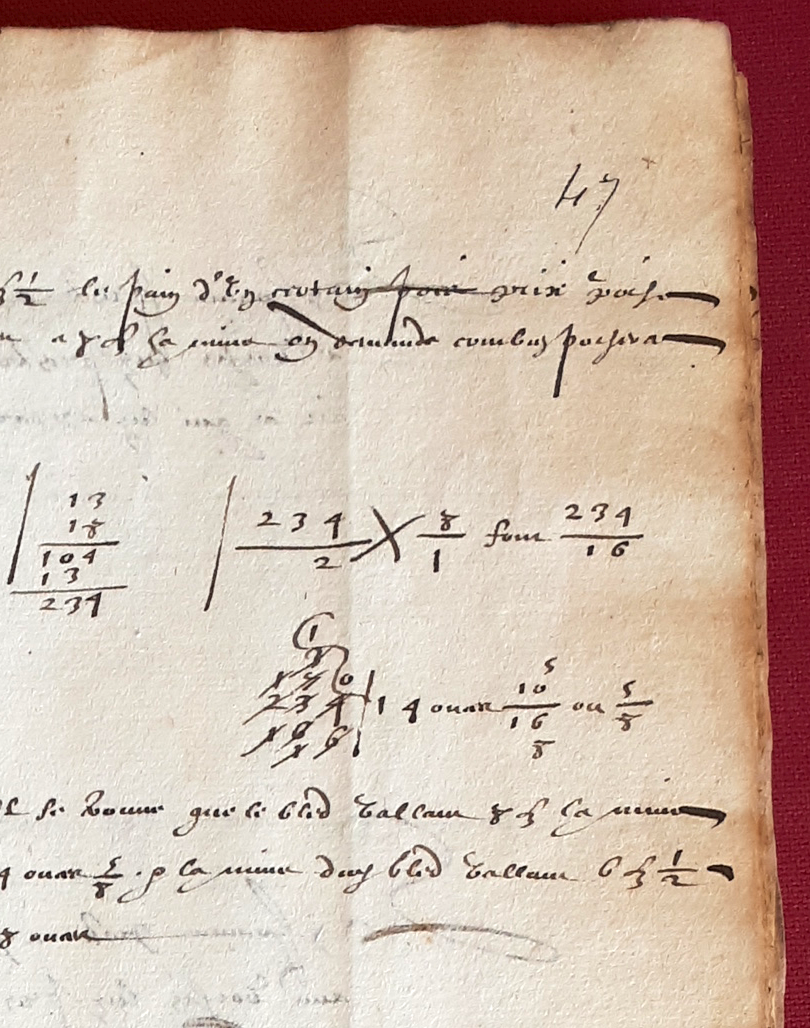 47
1/2 le pain d'un certain pois prix poise
a 8 la mine on demande combien poisera
13
18
104
13
234
234/2 8/1 font 234/16
1
234 14 onces 10/16 ou 5/8
5
8
se trouve que le bled vallant 8 la mine
4 onces 5/8 p la mine du bled vallant 6 1/2
8 onces